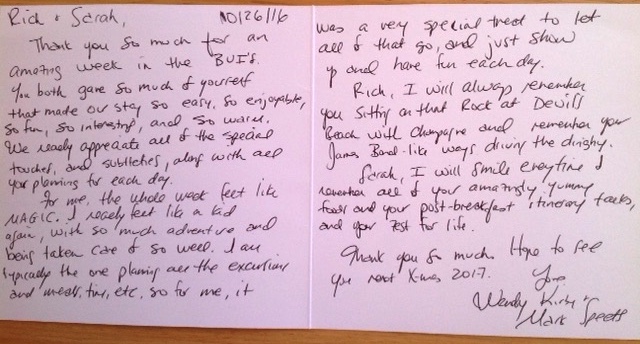 Rich & Sarah, 10/26/16
Thank you so much for an
amazing week in the BVI's.
You both gave so much of yourself
that made our stay so easy, so enjoyable,
so fun, so interesting, and so warm.
We really appreciate all of the special
touches, and subtleties, along with all
your planning for each day.
For me, the whole week felt like
MAGIC. I really felt like a kid
again, with so much adventure and
being taken care of so well. I am
typically the one planning all the excursions
and meals, time, etc. so for me, it
was a very special treat to let
all of that go, and just show
up and have fun each day.
Rich, I will always remember
you sitting on that Rock at Devil's
Beach with champagne and remember your
James Bond-like ways driving the dinghy.
Sarah, I will smile everytime I
remember all of your amazingly yummy
foods and your post-breakfast itinerary talks,
and your zest for life.
Thank you so much. Hope to see
you next X-mas 2017.
Love
Wendy Kirby &
Mark